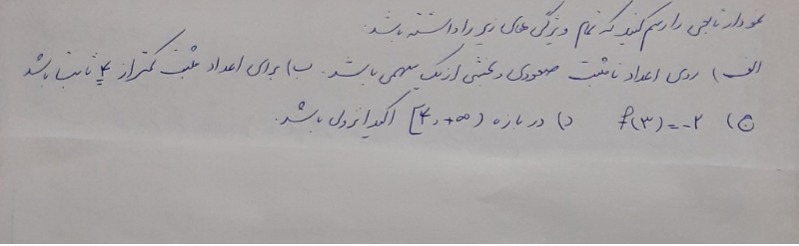 نمودار تابعی را رسم کنید که تمام ویژگی های زیر را داشته باشد.
الف) روی اعداد نامثبت صعودی و بخشی از یک سهمی باشد. ب) برای اعداد مثبت کمتر از ۴ ثابت باشد
ج) f(۳)=-۲ د) در بازه [۴,+∞) اکیدا نزولی باشد.